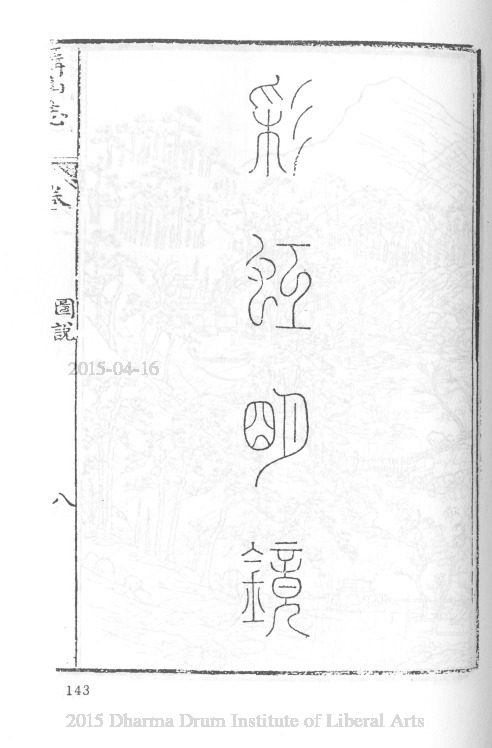 彩虹明鏡
圖說
八
143
2015-04-16
2015 Dharma Drum Institute of Liberal Arts